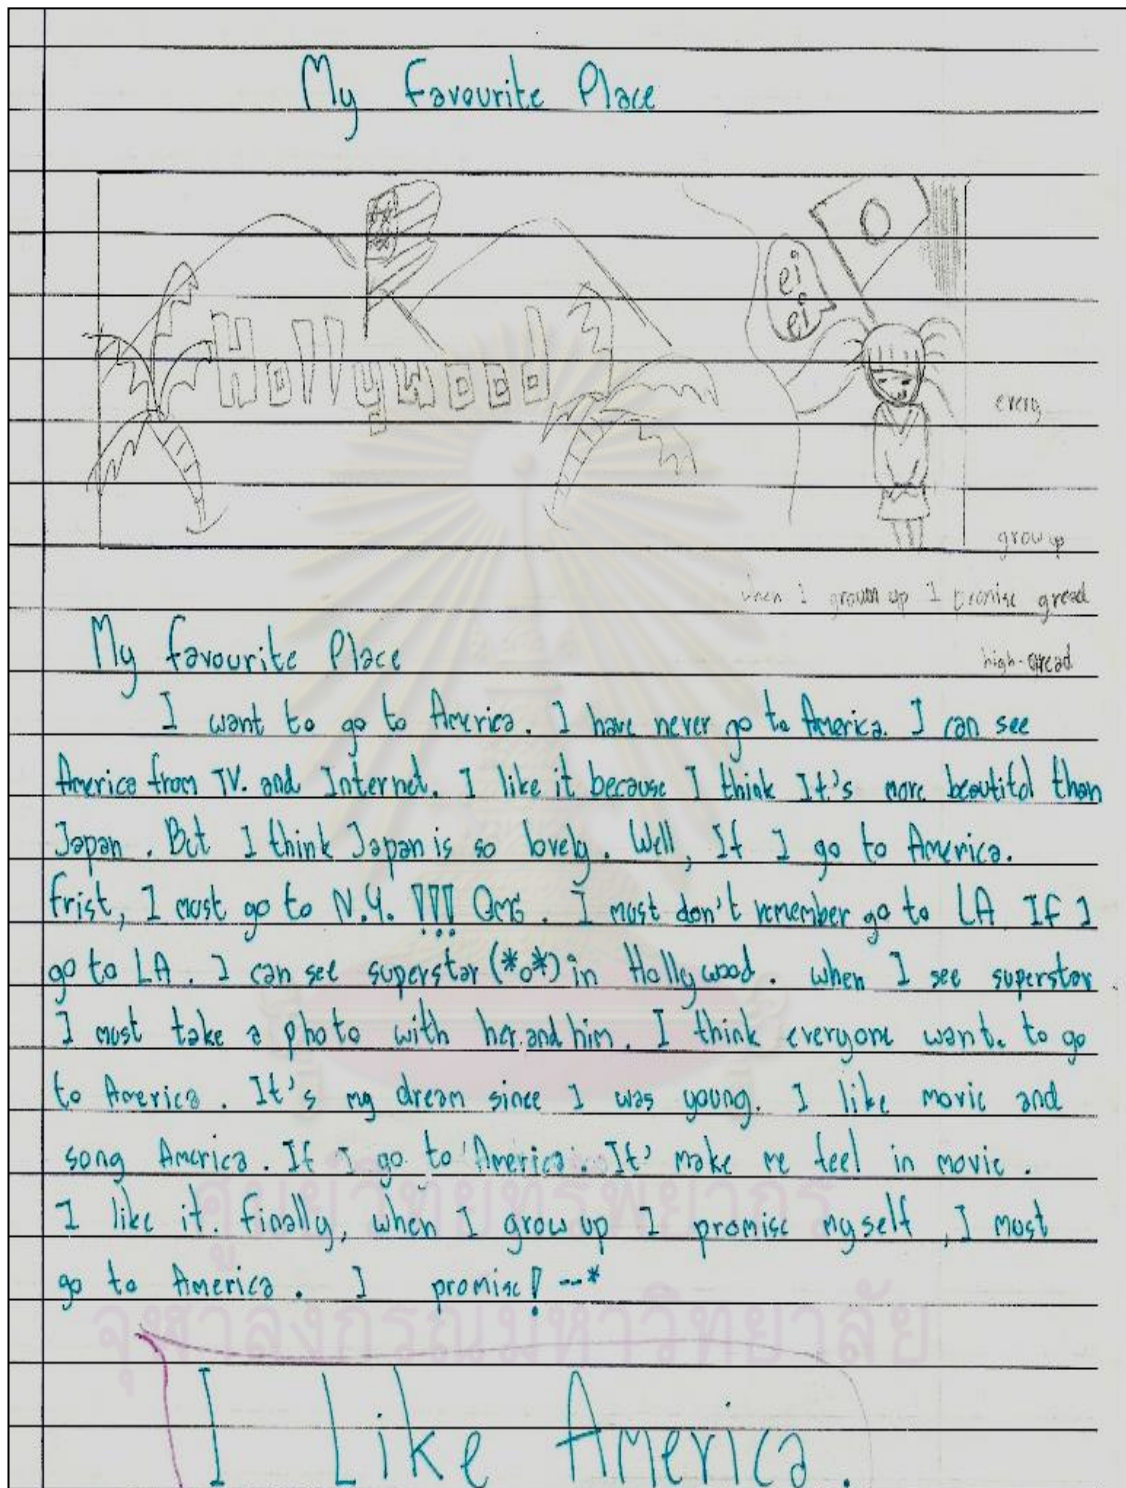 My Favourite Place
Hollywood
ei
ei
every
grow up
when I grown up I promise gread
high-gread
My favourite Place
I want to go to America. I have never go to America. I can see
America from TV. and Internet. I like it because I think It's more beautiful than
Japan. But I think Japan is so lovely. Well, If I go to America.
frist, I must go to N.Y. !!! OMG. I must don't remember go to LA If I
go to LA. I can see superstar (*o*) in Hollywood. when I see superstar
I must take a photo with her and him. I think everyone want. to go
to America. It's my dream since I was young. I like movie and
song America. If I go to America. It' make me feel in movie.
I like it. finally, when I grow up I promise myself, I must
go to America. I promise! --*
ศูนย์วิทยทรัพยากร
จุฬาลงกรณ์มหาวิทยาลัย
I Like America.